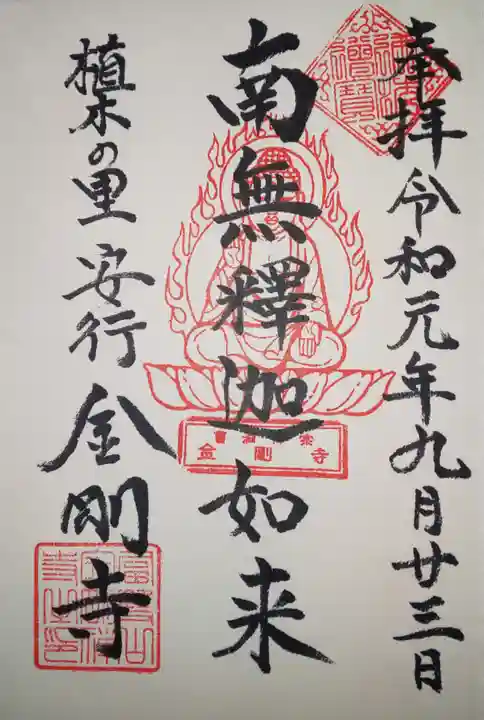 奉拝 令和元年九月廿三日
南無釋迦如来
植木の里 安行 金剛寺
曹洞宗
金剛寺